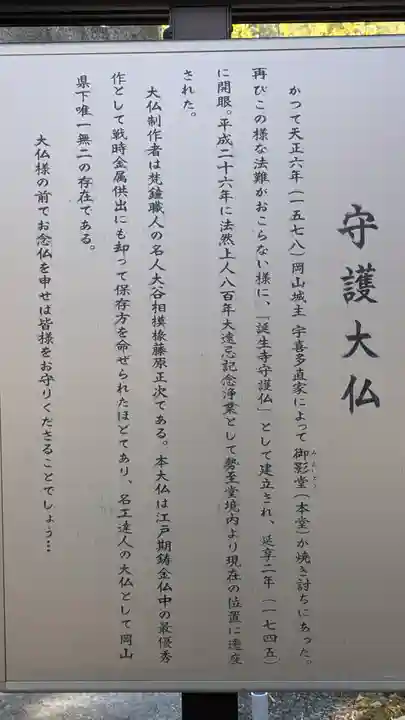 守護大仏
かつて天正六年(一五七八)岡山城主 宇喜多直家によって御影堂(本堂)が焼き討ちにあった。
みえいどう
再びこの様な法難がおこらない様に、「誕生寺守護仏」として建立され、延享二年(一七四五)
に開眼。平成二十六年に法然上人八百年大遠忌記念浄業として勢至堂境内より現在の位置に遷座
された。
大仏制作者は梵鐘職人の名人大谷相模掾藤原正次である。本大仏は江戸期鋳金仏中の最優秀
作として戦時金属供出にも却って保存方を命ぜられたほどであり、名工達人の大仏として岡山
県下唯一無二の存在である。
大仏様の前でお念仏を申せば皆様をお守りくださることでしょう…